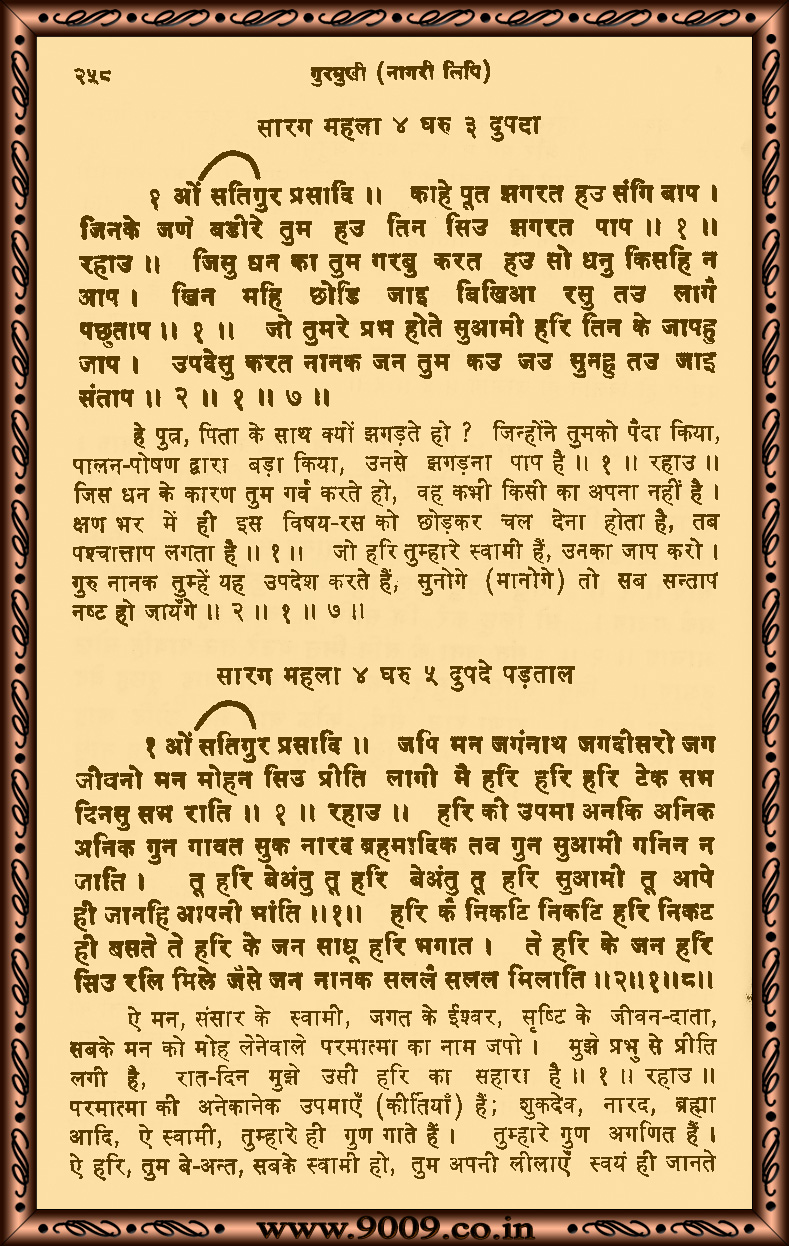 २५८ गुरमुखी (नागरी लिपि)
सारग महला ४ घरु ३ दुपदा
१ ओं सतिगुर प्रसादि ॥ काहे पूत झगरत हउ संगि बाप ।
जिनके जणे बडीरे तुम हउ तिन सिउ झगरत पाप ॥ १ ॥
रहाउ ॥ जिसु धन का तुम गरबु करत हउ सो धनु किसहि न
आप । खिन महि छोडि जाइ बिखिआ रसु तउ लागै
पछुताप ॥ १ ॥ जो तुमरे प्रभ होते सुआमी हरि तिन के जापहु
जाप । उपदेसु करत नानक जन तुम कउ जउ सुनहु तउ जाइ
संताप ॥ २ ॥ १ ॥ ७ ॥
हे पुत्र, पिता के साथ क्यों झगड़ते हो ? जिन्होंने तुमको पैदा किया,
पालन-पोषण द्वारा बड़ा किया, उनसे झगड़ना पाप है ॥ १ ॥ रहाउ ॥
जिस धन के कारण तुम गर्व करते हो, वह कभी किसी का अपना नहीं है ।
क्षण भर में ही इस विषय-रस को छोड़कर चल देना होता है, तब
पश्चात्ताप लगता है ॥ १ ॥ जो हरि तुम्हारे स्वामी हैं, उनका जाप करो ।
गुरु नानक तुम्हें यह उपदेश करते हैं, सुनोगे (मानोगे) तो सब सन्ताप
नष्ट हो जायँगे ॥ २ ॥ १ ॥ ७ ॥
सारग महला ४ घरु ५ दुपदे पड़ताल
१ ओं सतिगुर प्रसादि ॥ जपि मन जगंनाथ जगदीसरो जग
जीवनो मन मोहन सिउ प्रीति लागी मै हरि हरि हरि टेक सभ
दिनसु सभ राति ॥ १ ॥ रहाउ ॥ हरि की उपमा अनकि अनिक
अनिक गुन गावत सुक नारद ब्रहमादिक तव गुन सुआमी गनिन न
जाति । तू हरि बेअंतु तू हरि बेअंतु तू हरि सुआमी तू आपे
ही जानहि आपनी भांति ॥१॥ हरि कै निकटि निकटि हरि निकट
ही बसते ते हरि के जन साधू हरि भगात । ते हरि के जन हरि
सिउ रलि मिले जैसे जन नानक सललै सलल मिलाति ॥२॥१॥८॥
ऐ मन, संसार के स्वामी, जगत के ईश्वर, सृष्टि के जीवन-दाता,
सबके मन को मोह लेनेवाले परमात्मा का नाम जपो । मुझे प्रभु से प्रीति
लगी है, रात-दिन मुझे उसी हरि का सहारा है ॥ १ ॥ रहाउ ॥
परमात्मा की अनेकानेक उपमाएँ (कीर्तियाँ) हैं; शुकदेव, नारद, ब्रह्मा
आदि, ऐ स्वामी, तुम्हारे ही गुण गाते हैं । तुम्हारे गुण अगणित हैं ।
ऐ हरि, तुम बे-अन्त, सबके स्वामी हो, तुम अपनी लीलाएँ स्वयं ही जानते
www.9009.co.in